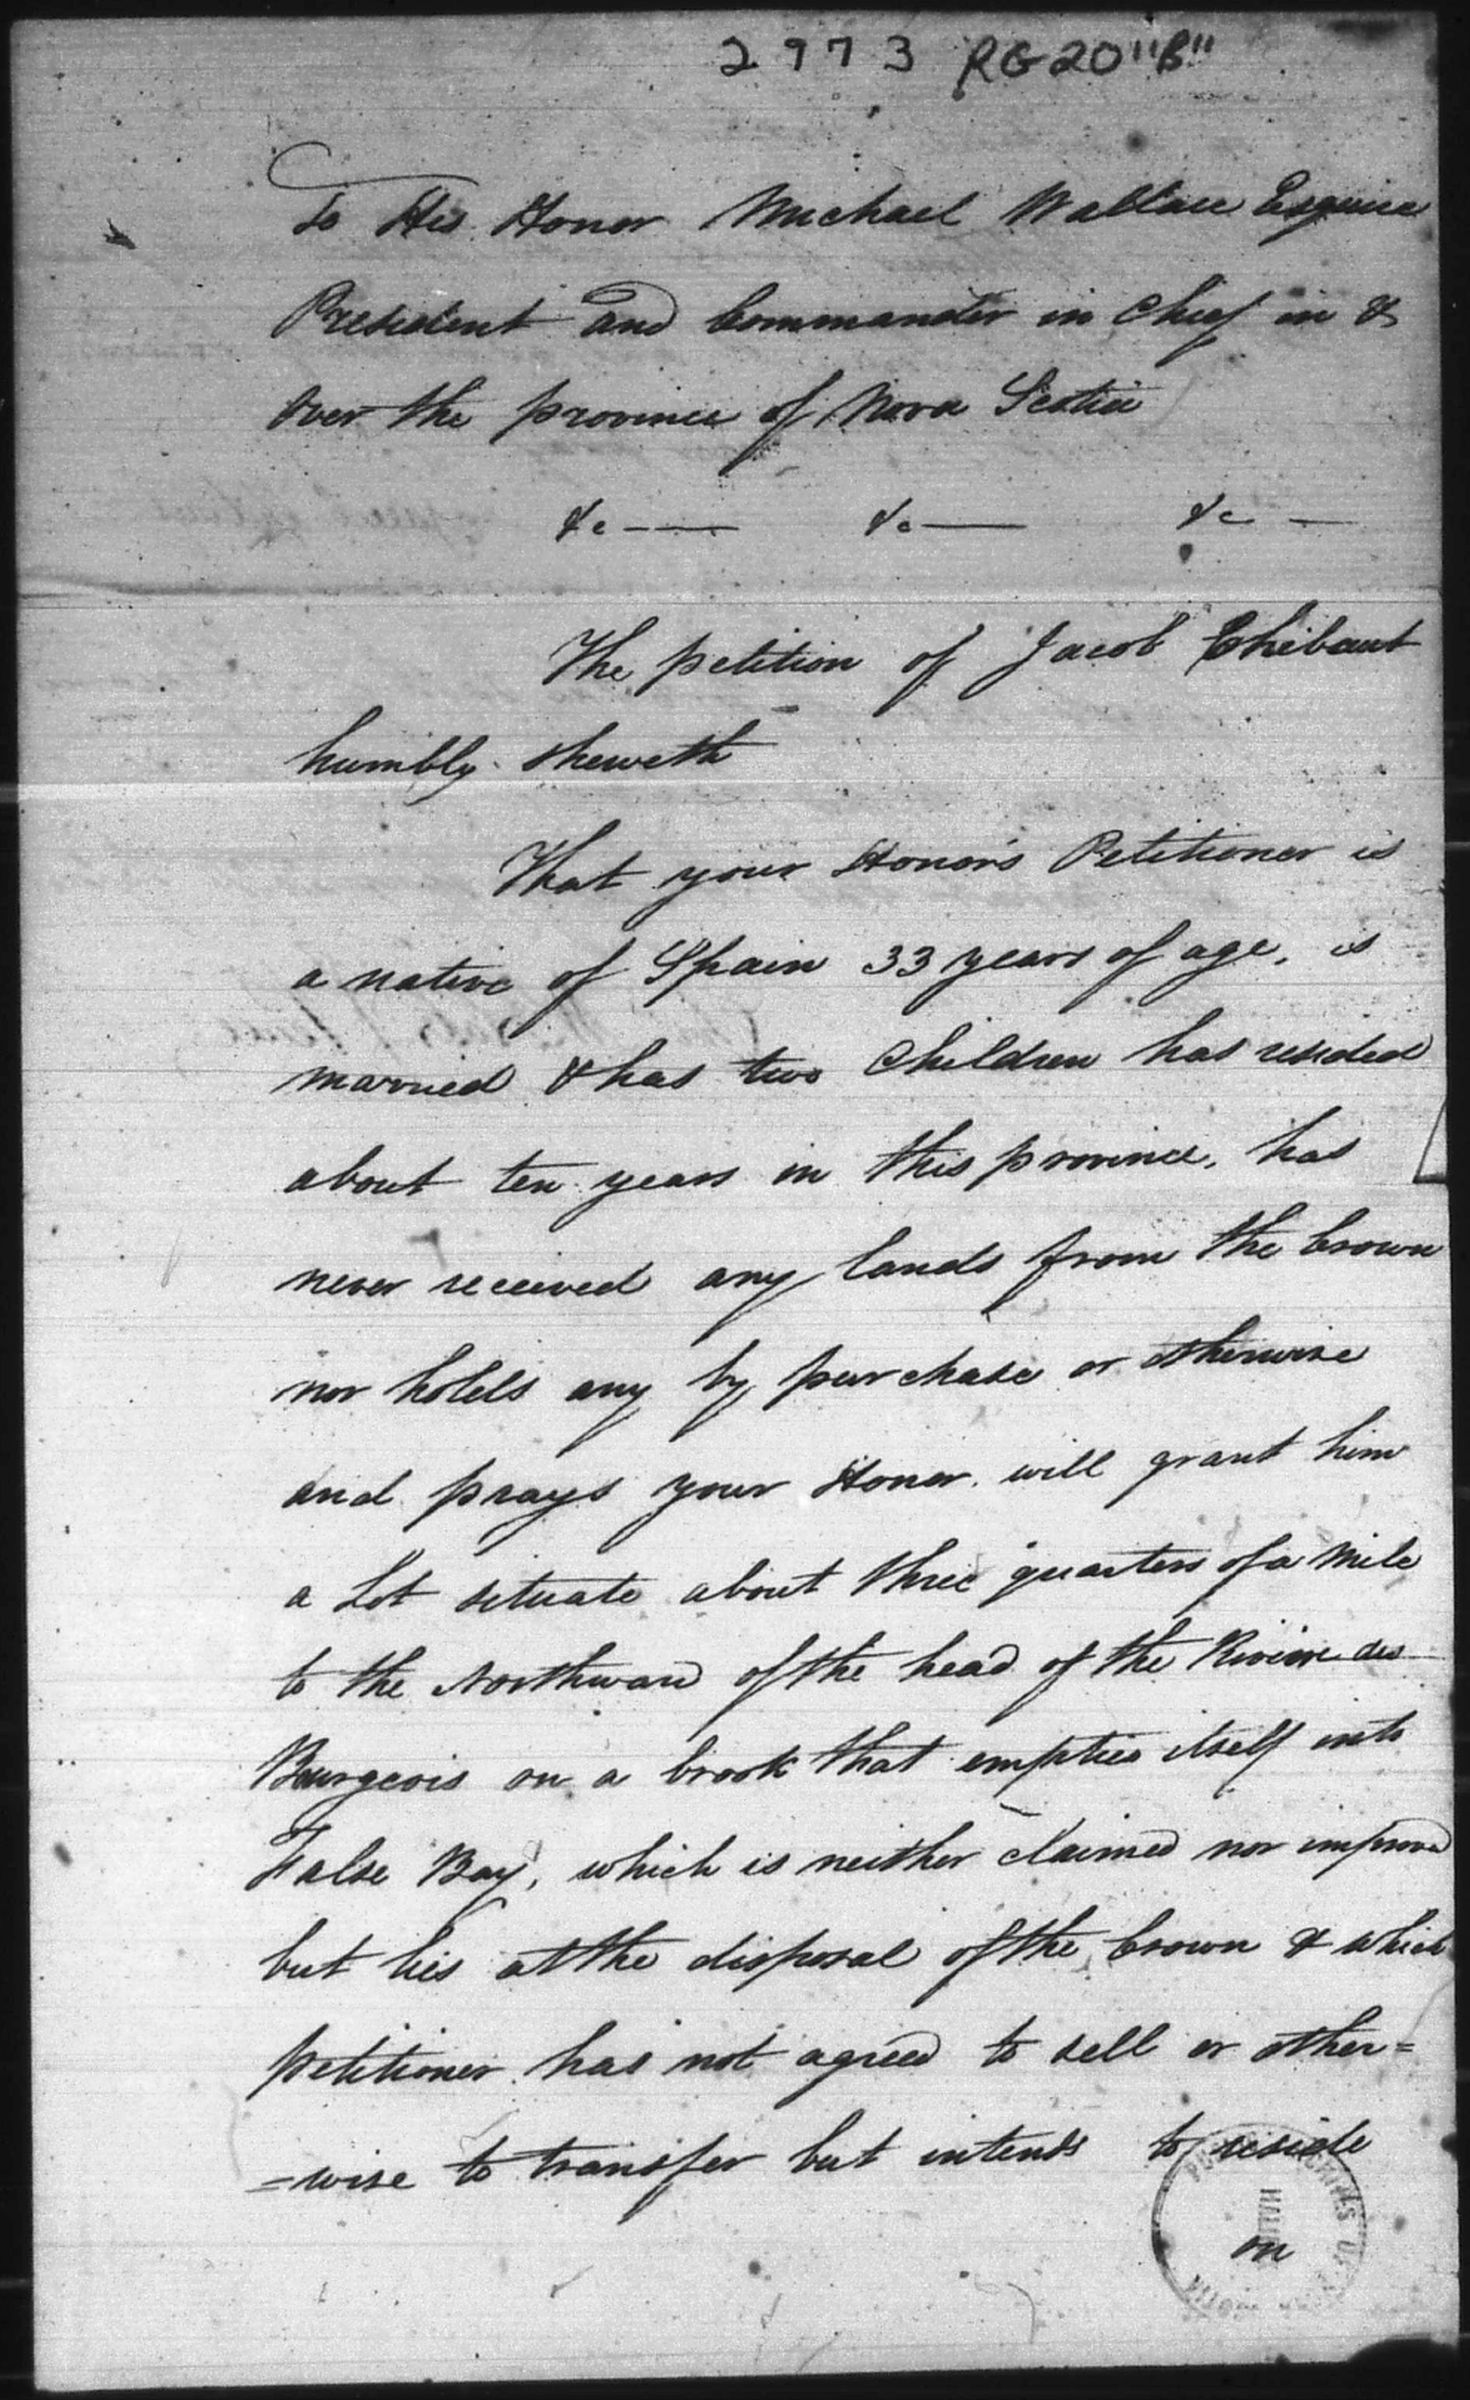 2973 RG20"B"
To His Honor Michael Wallace Esquire
President and Commander in Chief in &
Over the province of Nova Scotia
&c — &c — &c —
The petition of Jacob Thibaut
humbly sheweth
That your Honor's Petitioner is
a native of Spain 33 years of age, is
married & has two Children has resided
about ten years in this province, has
never received any lands from the Crown
nor holds any by purchase or otherwise
and prays your Honor will grant him
a Lot situate about three quarters of a mile
to the Northward of the head of the Riviere des
Bourgeois on a brook that empties itself into
False Bay, which is neither claimed nor improvd
but lies at the disposal of the Crown & which
petitioner has not agreed to sell or other=
=wise to transfer but intends to reside
on